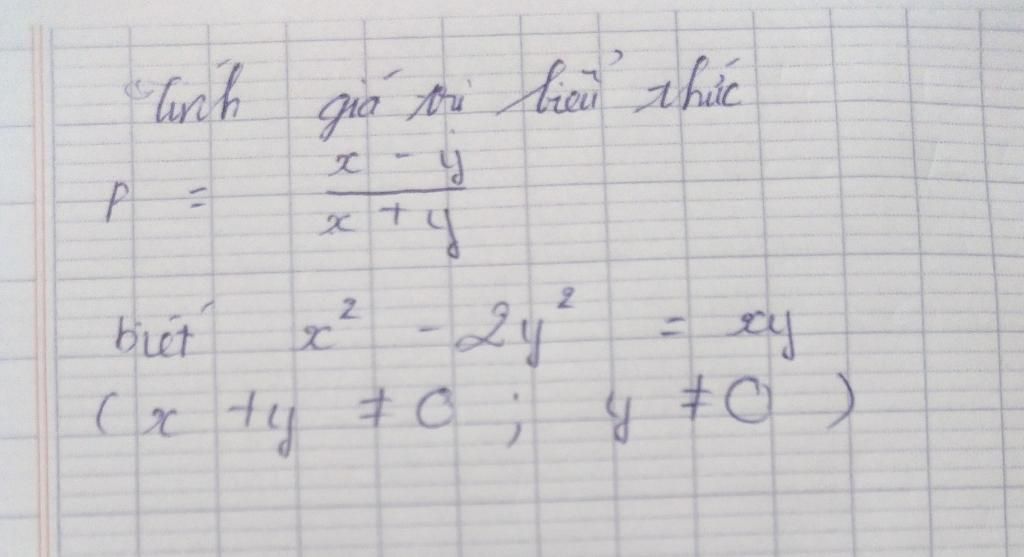 Tính giá trị biểu thức
P = \frac{x - y}{x + y}
biết x² - 2y² = xy
( x + y ≠ 0 ; y ≠ 0 )